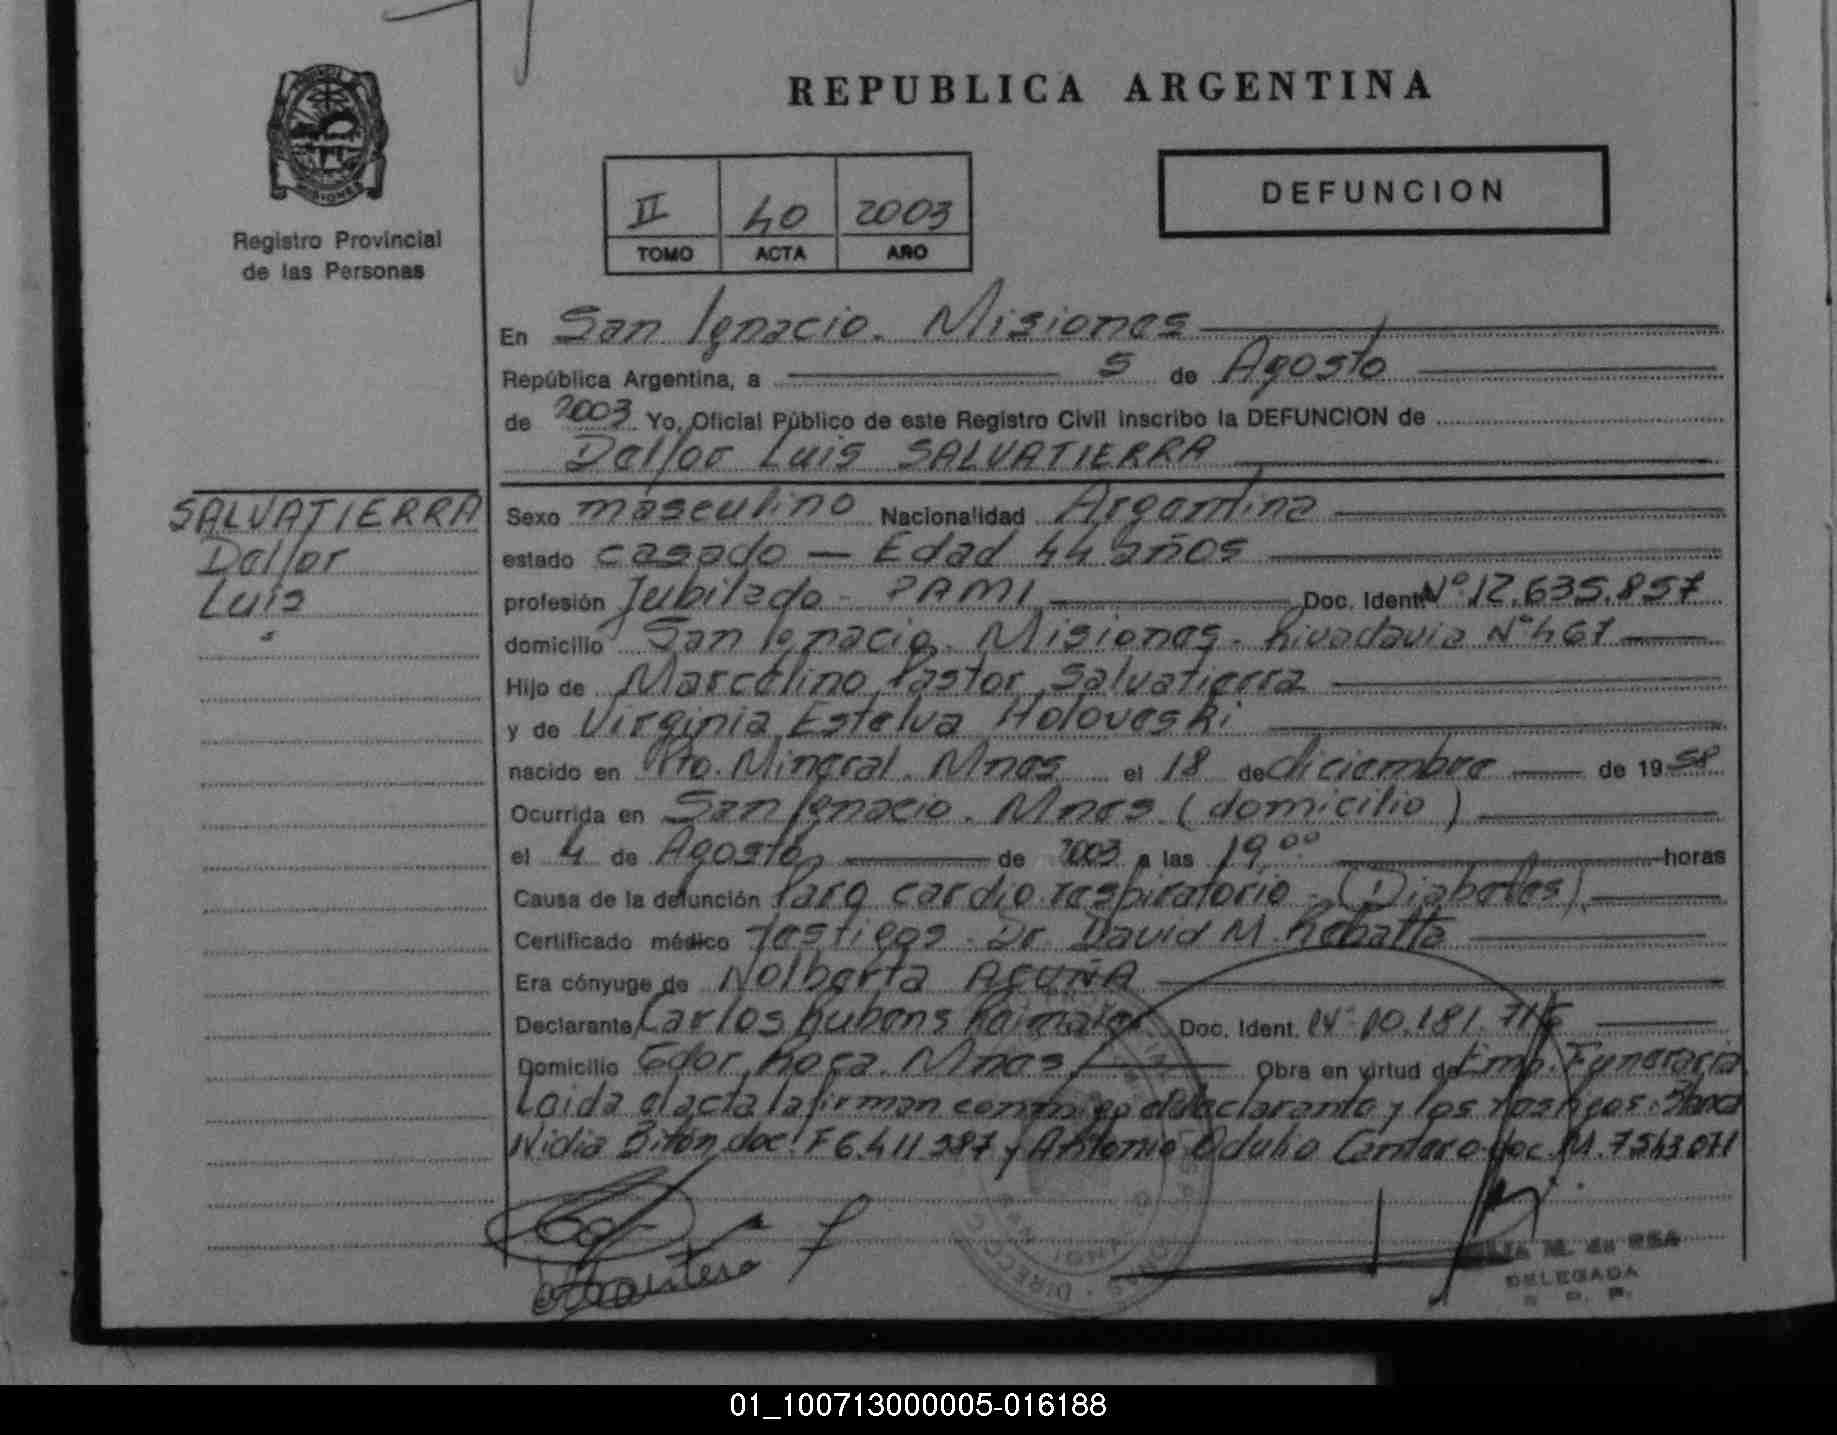 REPUBLICA ARGENTINA
DEFUNCION
II 40 2003
TOMO ACTA AÑO
Registro Provincial
de las Personas
En San Ignacio. Misiones
República Argentina, a 5 de Agosto
de 2003 Yo, Oficial Público de este Registro Civil inscribo la DEFUNCION de
Luis SALVATIERRA
SALVATIERRA
Luis
Sexo masculino Nacionalidad Argentina
estado casado — Edad 44 años
profesión Jubilado - PAMI Doc. Ident. Nº 12.635.857
domicilio San Ignacio. Misiones - Rivadavia Nº 467
Hijo de Marcelino Pastor Salvatierra
y de Virginia Estelva Holoveski
nacido en Pto. Mineral. Mnes el 18 de diciembre de 1958
Ocurrida en San Ignacio. Mnes. (domicilio)
el 4 de Agosto de 2003 a las 19 00 horas
Causa de la defunción Paro cardio respiratorio - (Diabetes)
Certificado médico testigos. Dr. David M.
Era cónyuge de Nolberta ACUÑA
Declarante Carlos Rubens Doc. Ident. Nº 10.181.
Domicilio Gdor. Roca. Mnes. Obra en virtud de Emp. Funeraria
Leida el acta la firman conmigo el declarante y los testigos: Blanca
Nidia doc. F 6.411.387 y Antonio Odulio doc. M. 7543071
DELEGADA
01_100713000005-016188